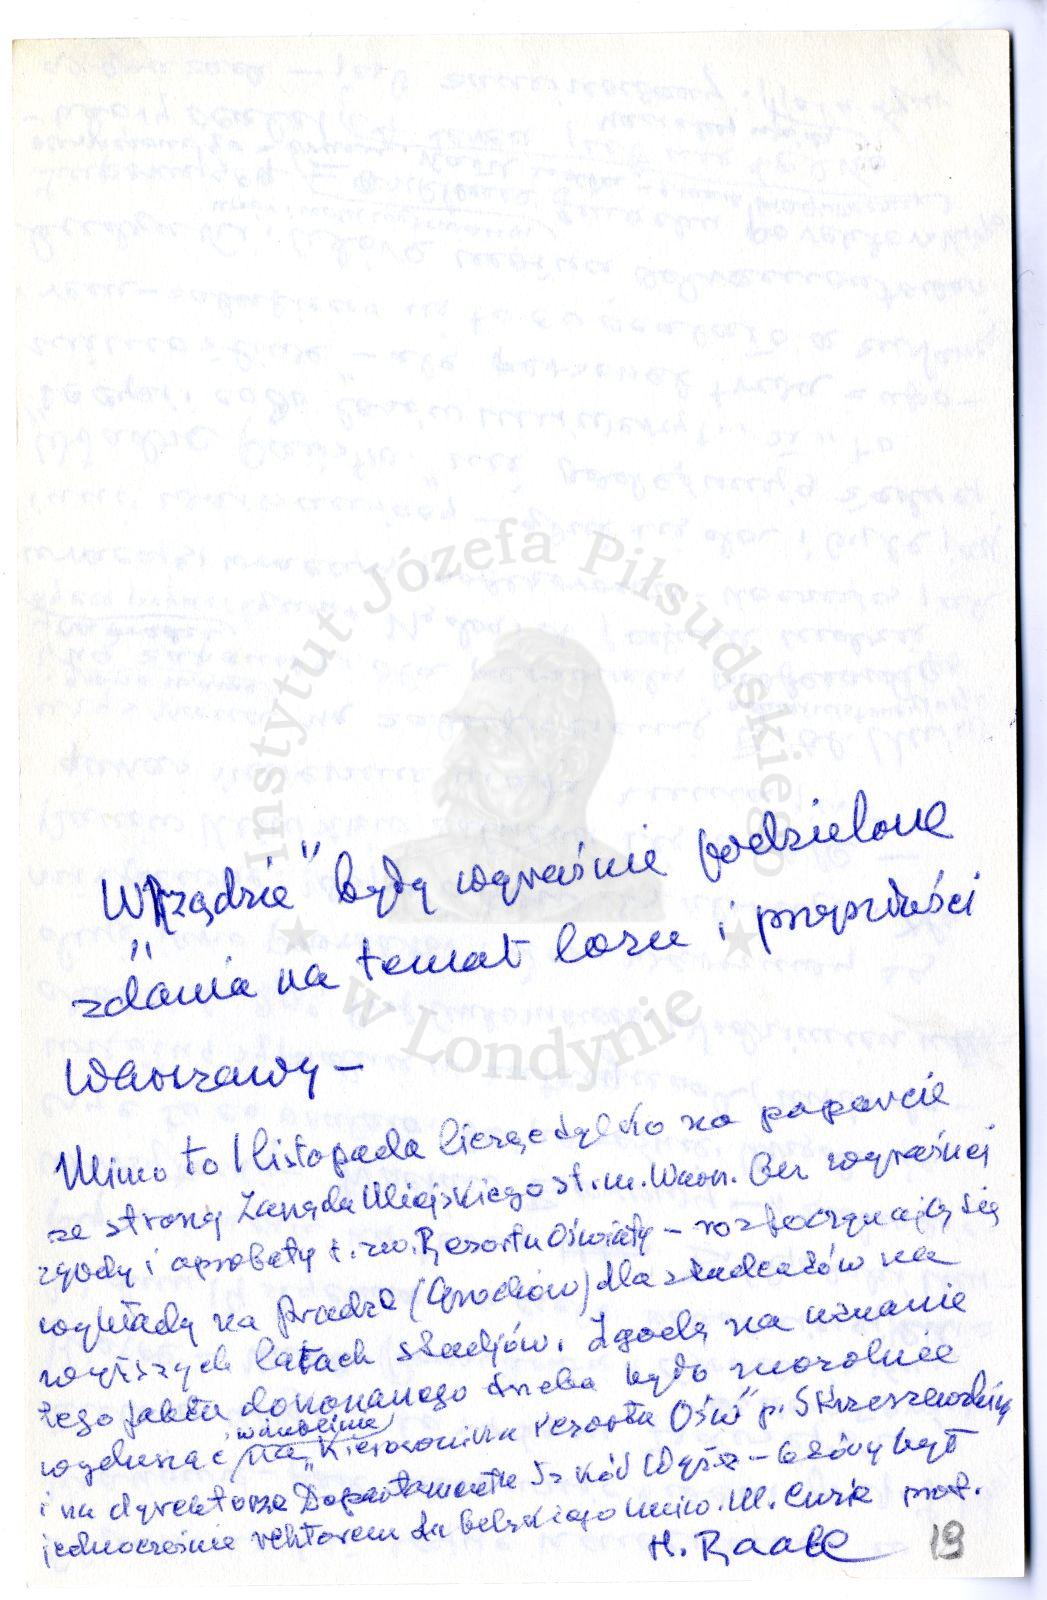 W „Rządzie” były wyraźnie podzielone
zdania na temat losu i przyszłości
Warszawy –
Mimo to 1 listopada licząc tylko na poparcie
ze strony Zarządu Miejskiego st. m. Warsz. Bez wyraźnej
zgody i aprobaty t. zw. Resortu Oświaty – rozpoczynają się
wykłady na Pradze (Grochów) dla studentów na
wyższych latach studjów. Zgodę na uznanie
tego faktu dokonanego trzeba było moralnie
wydusząć na kierowniku resortu Ośw” p. Skrzeszewskim
i na dyrektorze Departamentu Szkół Wyższ – który był
jednocześnie rektorem Lubelskiego Uniw. M. Curie prof.
H. Raabe
19
Instytut Józefa Piłsudskiego
w Londynie